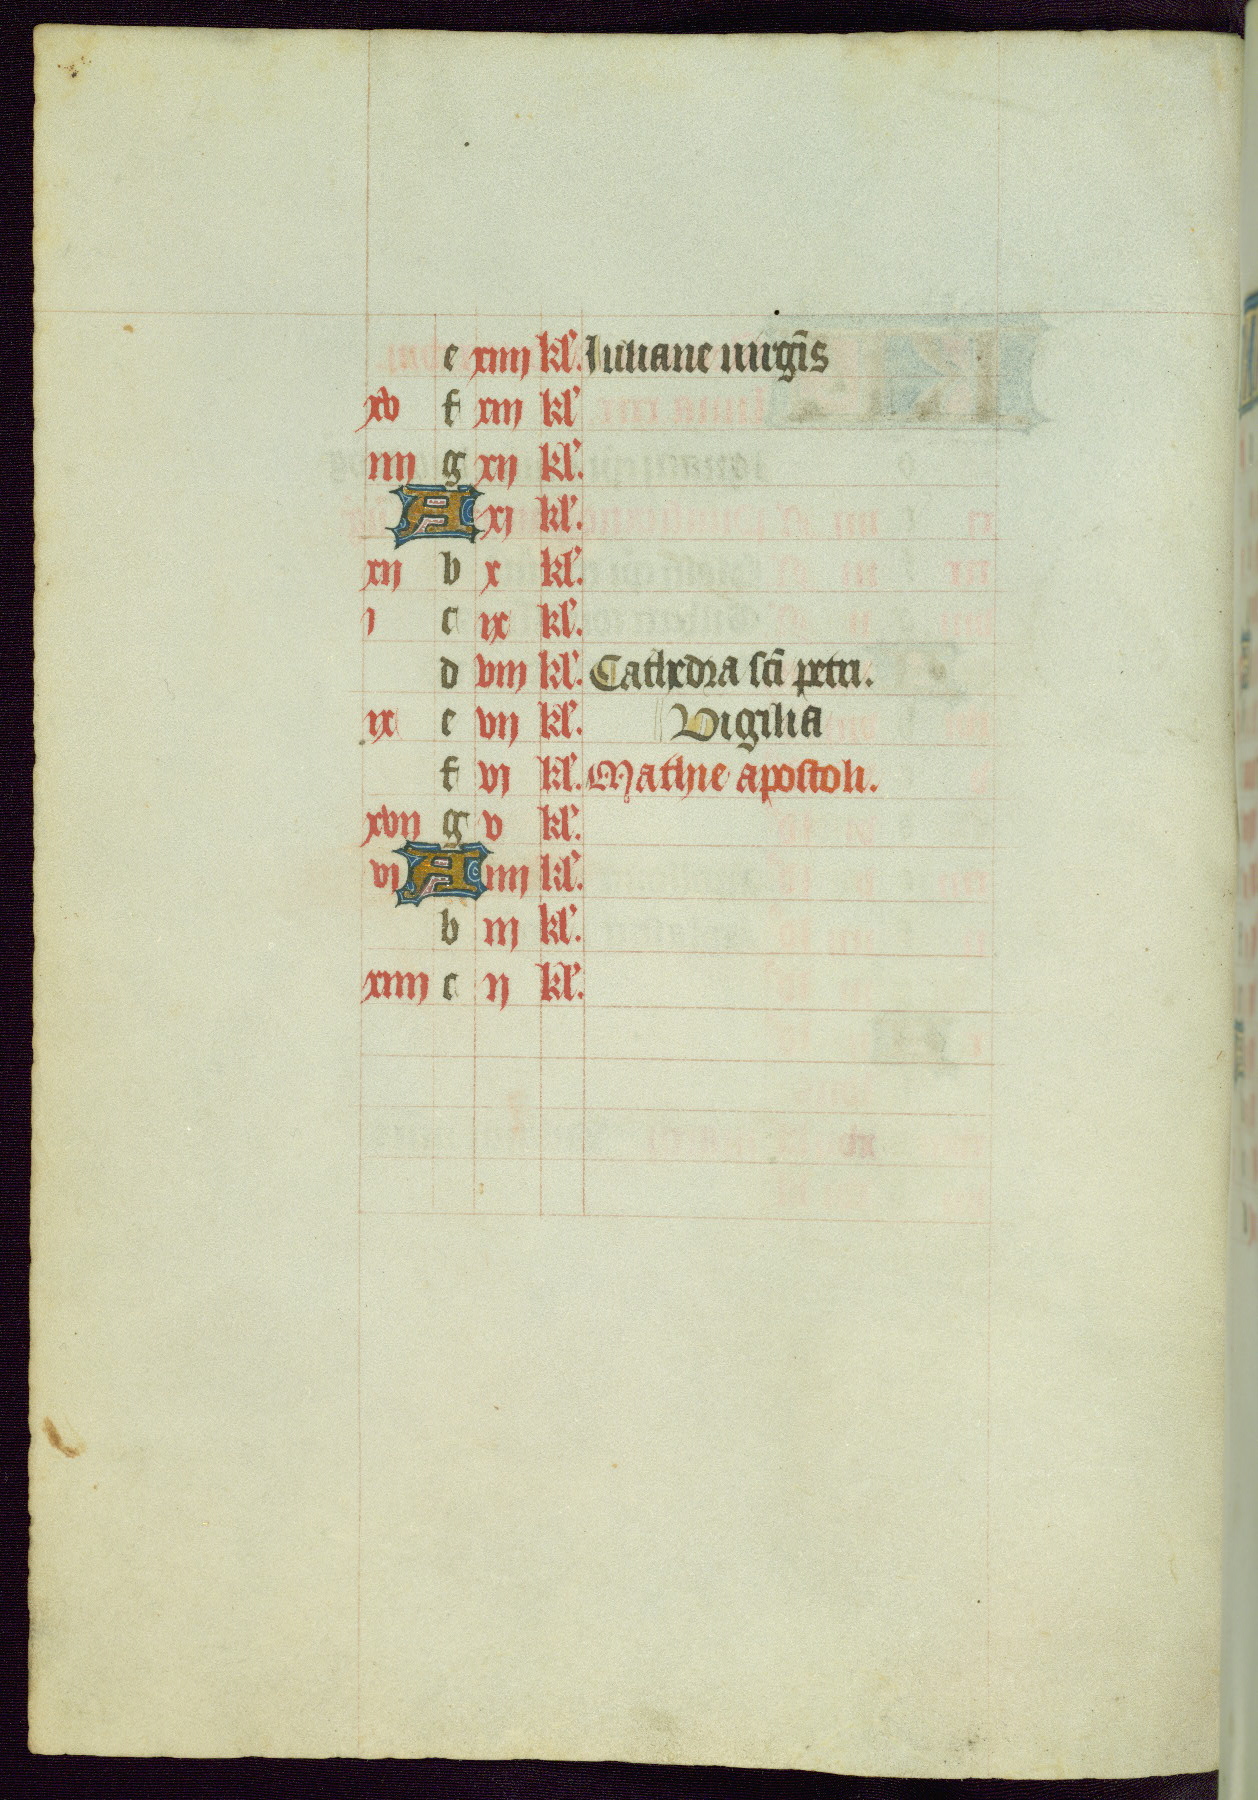 e xiiij kl'. Iuliane uirgis̄
xv f xiij kl'
iiij g xij kl'.
A xj kl'.
xij b x kl'.
j c ix kl'.
d viij kl'. Cathedra sc̄i petri.
ix e vij kl'. Vigilia
f vj kl'. Mathie apostoli.
xvij g v kl'.
vj A iiij kl'.
b iij kl'.
xiiij c ij kl'.